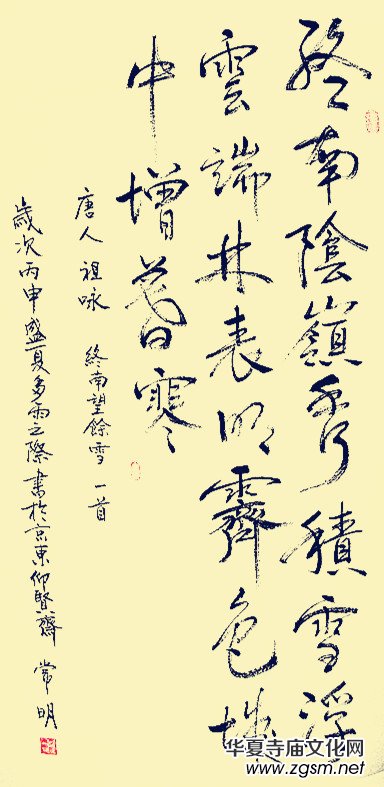 終南陰嶺秀積雪浮
雲端林表明霽色城
中增暮寒
唐人祖咏 終南望餘雪一首
歲次丙申盛夏多雨之際書於京東仰賢齋 常明
华夏寺庙文化网
www.zgsm.net